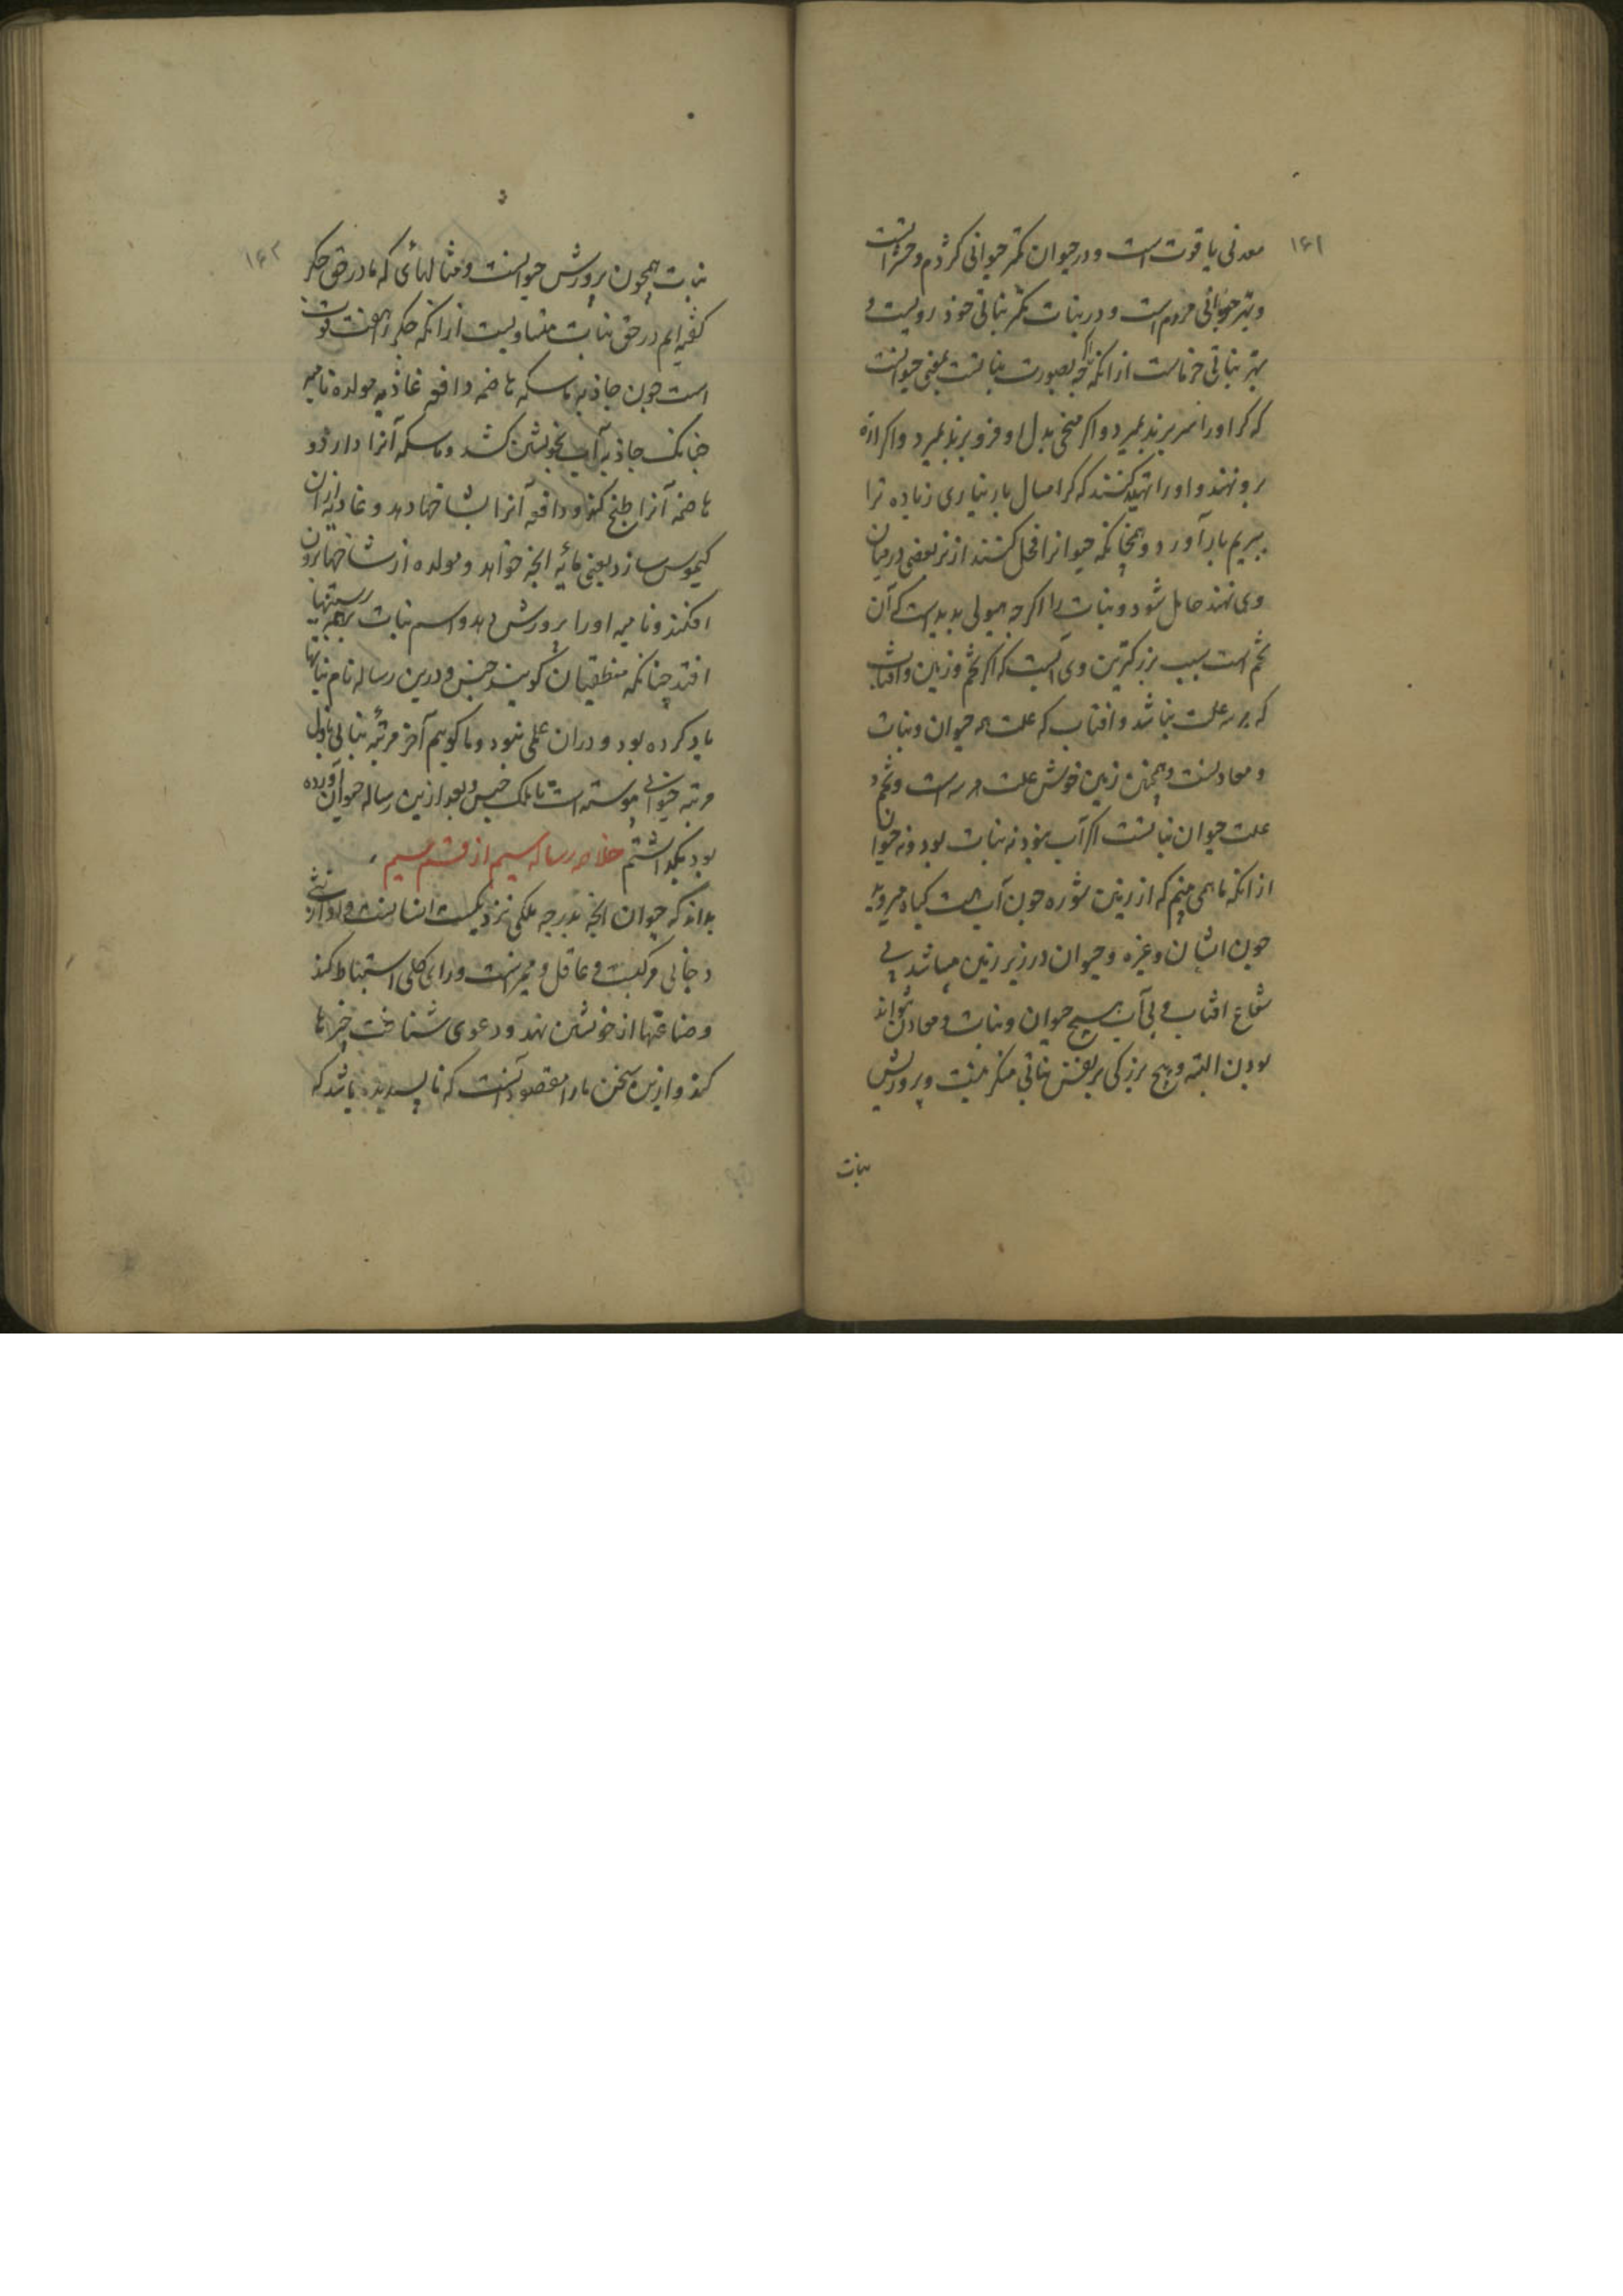 ۱۶۱
معدنی یاقوت است و در حیوان کمتر حیوانی کژدم و حشراتست
و بهتر حیوانی مردم است و در نبات کمتر نباتی خود رویست و
بهتر نباتی خرماست از آنکه اگر چه بصورت نباتست بمعنی حیوانست
که گر اورا سر برند بمیرد و اگر میخی بدل او فرو برند بمیرد و اگر اره
برو نهند و اورا تهدید کنند که گر امسال بار نیاری زیاده ترا
ببریم بار آورد و همچنانکه حیوانرا فحل کنند از نر بعضی در میان
وی نهند حامل شود و نبات را اگرچه هیولی پدیدست که آن
تخم است سبب بزرگترین وی آنست که اگر تخم و زمین و آفتاب
که هر سه علت نباشد و افتاب که علت همه حیوان و نبات
و معادنست و همچنین زمین خوش علت هر سه است و تخم
علت حیوان نباتست اگر آب نبود نه نبات بود و نه حیوان
از آنکه ما همی بینیم که از زمین شوره چون آب هست گیاه میروید
چون اشنان و غیره و حیوان در زیر زمین میباشد بی
شعاع افتاب و بی آب هیچ حیوان و نبات و معادن نتواند
بودن البته و هیچ بزرگی بر نفس نباتی منکر نیست و پرورش
نبات
۱۶۲
نبات همچون پرورش حیوانست و مثالهائی که ما در حق جگر
گفته ایم در حق نبات متساویست ازانکه جگر را هفت قوت
است چون جاذبه ماسکه هاضمه دافعه غاذیه مولده نامیه
چنانک جاذبه آب بخویشتن کشد و ماسکه آنرا دارد و
هاضمه آنرا طبخ کند و دافعه آنرا بشاخها دهد و غاذیه ازان
کیموس سازد یعنی مائیه انچه خواهد و مولده از شاخها برون
افکند و نامیه اورا پرورش دهد و اسم نبات بر همه رستنیها
افتد چنانکه منطقیان گویند جنس و درین رساله نام نباتها
یاد کرده بود و دران علمی نبود و ما گوییم آخر مرتبه نباتی باول
مرتبه حیوانی پیوسته است تا بانک جنس و بعد ازین رساله حیوان آورده
بود بگذاشتم خلاصه رساله سیم از قسم سیم
بداند که حیوان انچه بدرجه ملکی نزدیکست انسانست و او از تنی
و جانی مرکبست و عاقل و ممیزست و رای کلی استنباط کند
و صناعتها از خویشتن نهد و دعوی شناخت چیزها
کند و ازین سخن مارا مقصود آنست که ناپسندیده باشد که